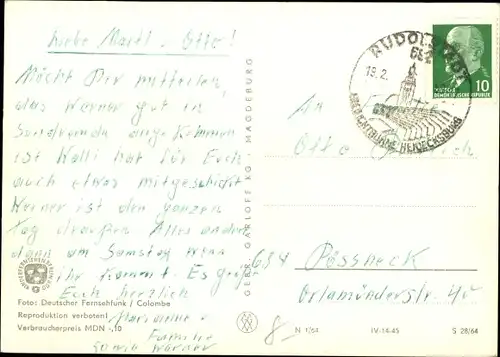 Liebe Martl. Otto!
Möcht Dir mitteilen,
das Werner gut in
angekommen
ist Walli hat für Euch
auch etwas mitgeschickt
Werner ist den ganzen
Tag draußen Alles andere
dann am Samstag wenn
ihr kommt. Es grüßt
Euch herzlich
Marianne
Familie
sowie Werner
Foto: Deutscher Fernsehfunk / Colombe
Reproduktion verboten!
Verbraucherpreis MDN -,10
GEBR. GARLOFF KG MAGDEBURG
RUDOLSTADT
18.2.
HEIDECKSBURG
10
DEUTSCHE DEMOKRATISCHE REPUBLIK
An
Otto
684 Pössneck
Orlamünderstr. 40
8-
N 1/64 IV-14-45 S 28/64